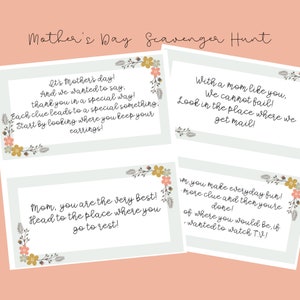 Mother's Day Scavenger Hunt
It's Mother's day!
And we wanted to say,
thank you in a special way!
Each clue leads to a special something,
Start by looking where you keep your
earrings!
With a mom like you,
We cannot fail!
Look in the place where we
get mail!
Mom, you are the very best!
Head to the place where you
go to rest!
you make everyday fun!
more clue and then you're
done!
of where you would be, if
wanted to watch T.V.!